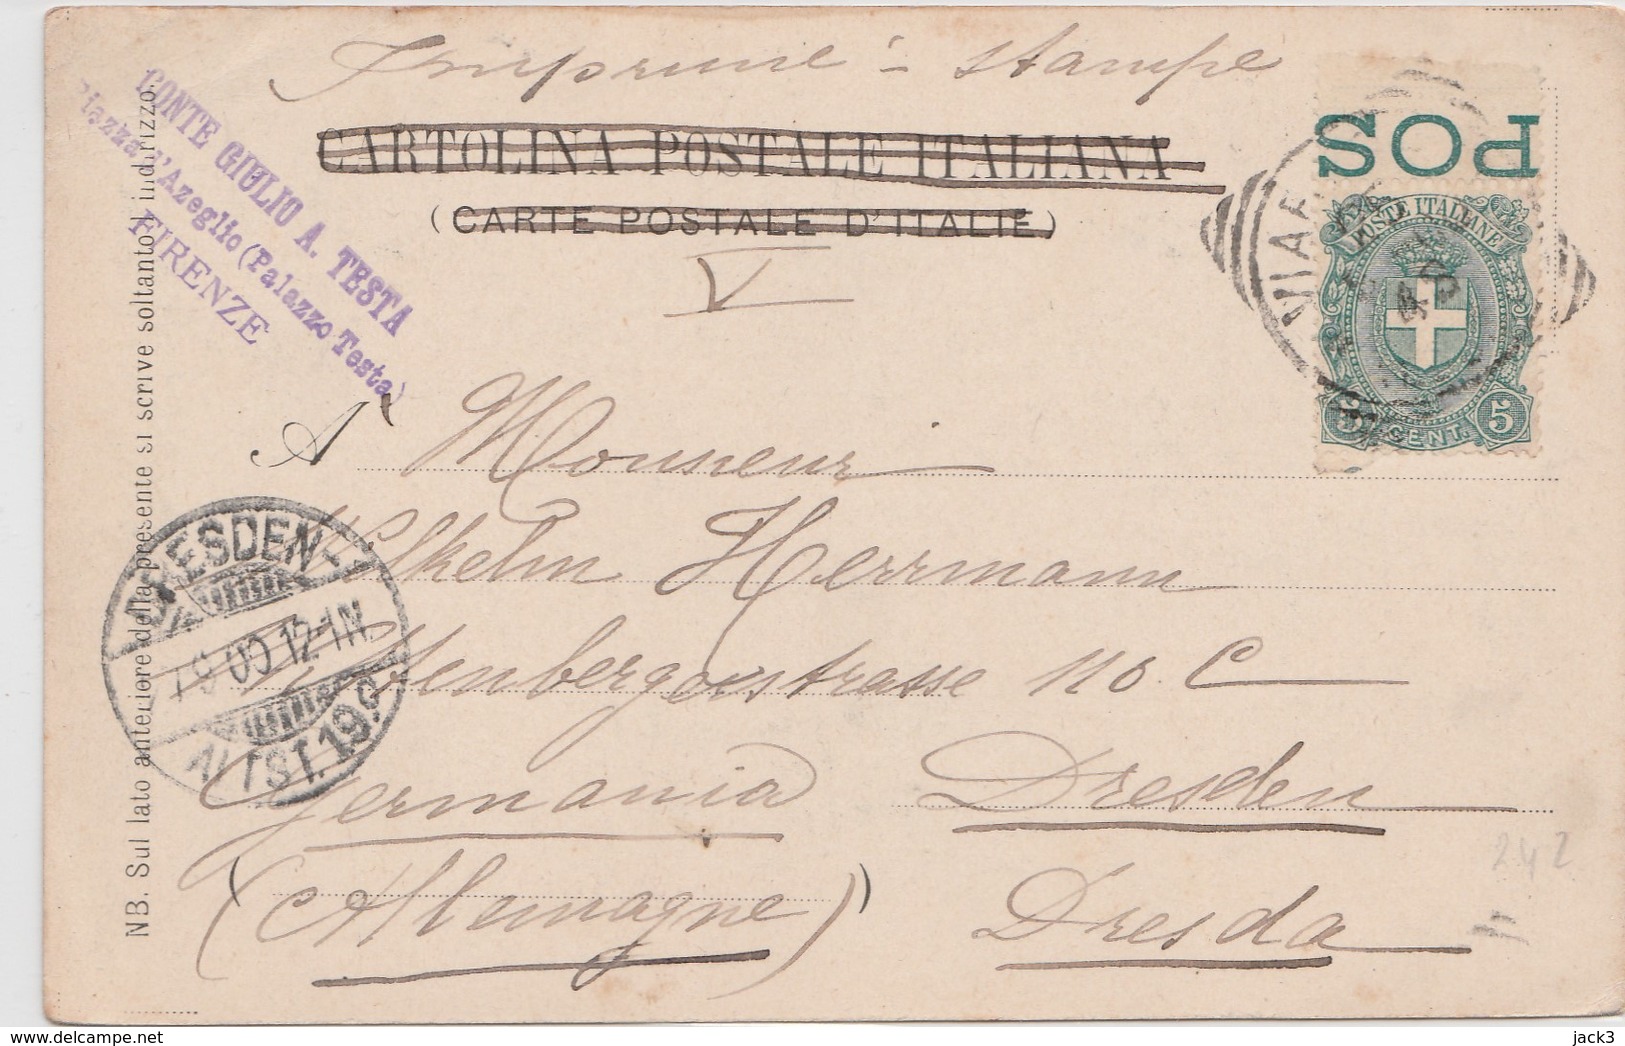 Imprimé - Stampe
CARTOLINA POSTALE ITALIANA
(CARTE POSTALE D'ITALIE)
CONTE GIULIO A. TESTA
Piazza d'Azeglio (Palazzo Testa)
FIRENZE
NB. Sul lato anteriore della presente si scrive soltanto l'indirizzo.
POS
POSTE ITALIANE
5 CENT. 5
VIAR
A Monsieur
Wilhelm Herrmann
no. C
DRESDEN-
7.9.00.12-1N
ALTST.19.c
Germania Dresden
(Allemagne) Dresda
242
delcampe.net
jack3